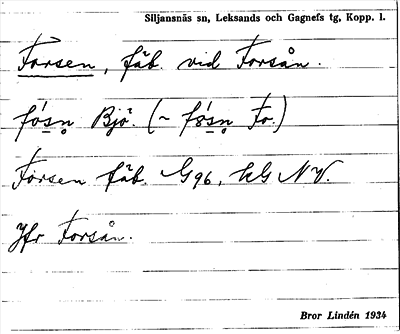 Siljansnäs sn, Leksands och Gagnefs tg, Kopp. l.
Forsen, fäb. vid Forsån.
fó̱sn̥ Bjö. (~ fǿ̱sn̥ Fo.)
Forsen fäb. G96, hG NV.
Jfr Forsån.
Bror Lindén 1934